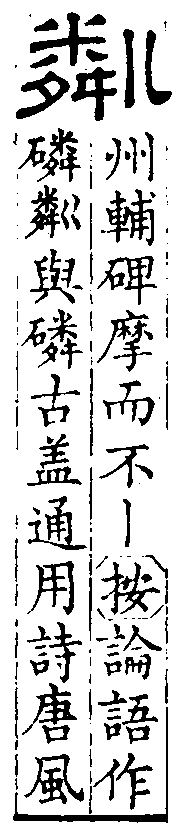 粼
州輔碑摩而不丨按論語作
磷粼與磷古盖通用詩唐風